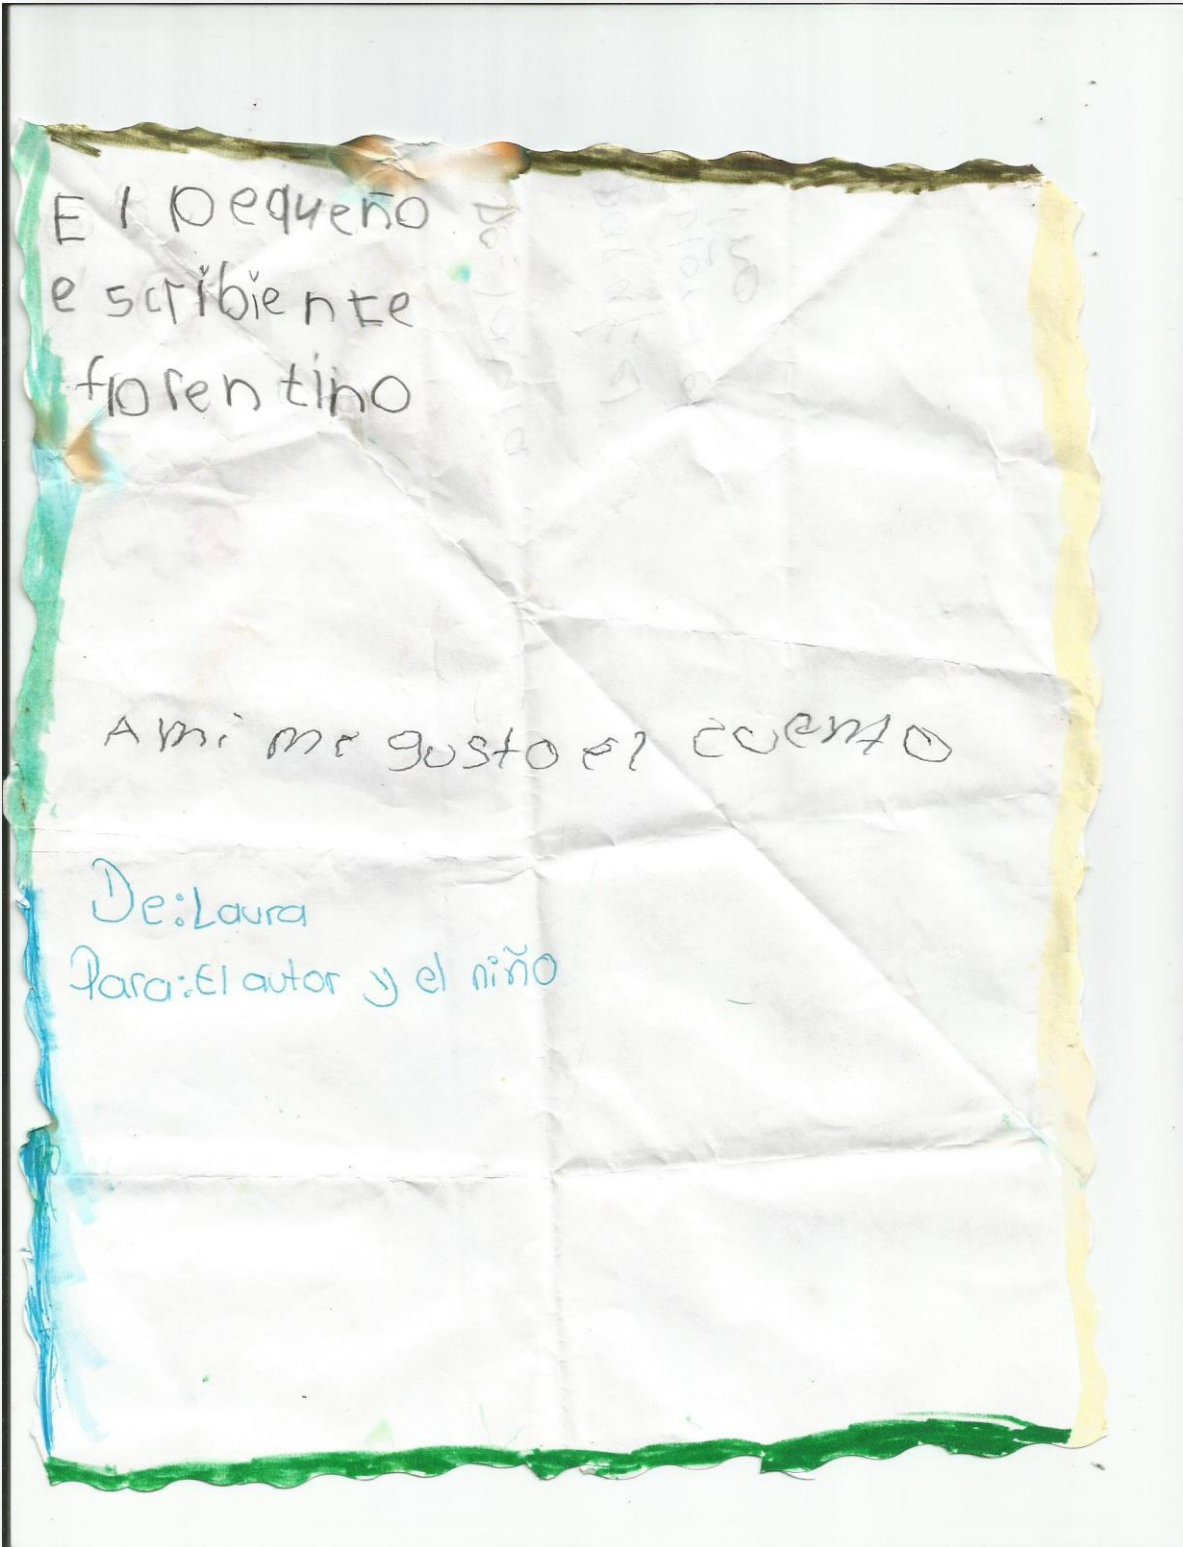 El pequeño
escribiente
florentino
A mi me gusto el cuento
De: Laura
Para: El autor y el niño